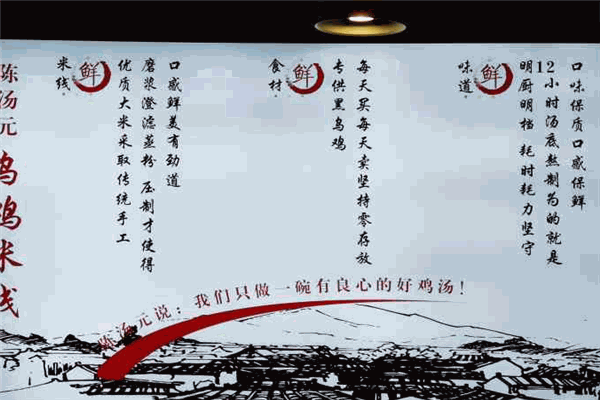 陈汤元 乌鸡米线
米线·
鲜
优质大米采取传统手工
磨浆澄滤蒸粉 压制才使得
口感鲜美有劲道
食材·
鲜
专供黑乌鸡
每天买每天卖坚持零存放
味道·
鲜
明厨明档 耗时耗力坚守
12小时汤底熬制为的就是
口味保质口感保鲜
陈汤元说：我们只做一碗有良心的好鸡汤！